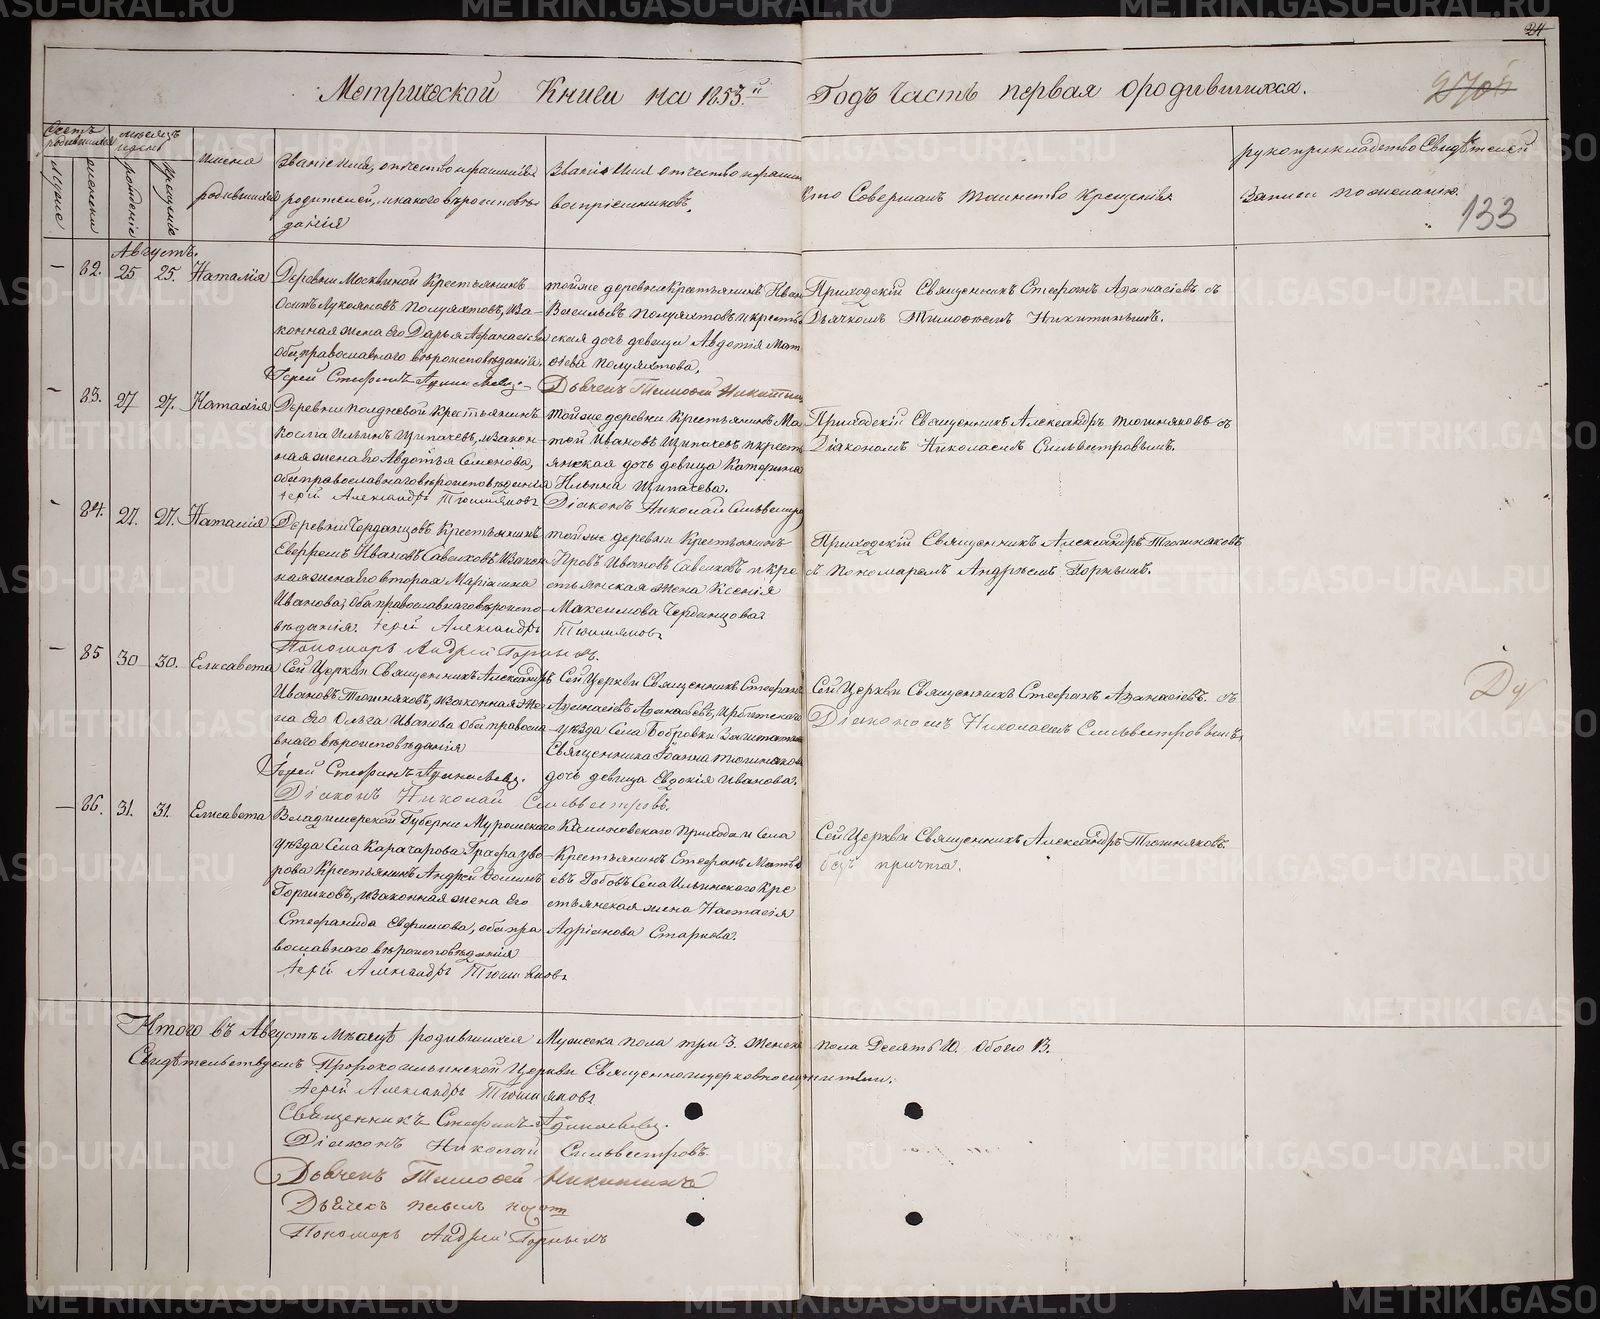 24
Метрической Книги на 1853.й Годъ часть первая о родившихся.
133
Счетъ родившихся
мѣсяцъ и день
Имена родившихся
Званіе имя, отчество и фамилія родителей, и какого вѣроисповѣданія
Званіе имя отчество и фамилія воспріемниковъ.
Кто Совершалъ таинство крещенія
рукоприкладство Свидѣтелей записи по желанію.
мужеска
женска
рожденіе
крещеніе
Августъ.
82. 25 25. Наталія
Деревни Москвиной Крестьянинъ
Осипъ Лукояновъ Полуяхтовъ, и За-
конная жена его Дарья Афанасьева
оба православнаго вѣроисповѣданія.
Іерей Стефанъ Афанасьевъ.
той же деревни Крестьянинъ Иван
Васильевъ Полуяхтовъ и крестья
нская дочь девица Авдотія Мат
ѳіева Полуяхтова.
Дьячекъ Тимофей Никитинъ
Приходскій Священникъ Стефанъ Аѳанасіевъ съ
Дьячкомъ Тимоѳеемъ Никитинымъ.
83. 27 27. Наталія
Деревни Полдневой Крестьянинъ
Косма Ильинъ Щипачевъ, и закон-
ная жена его Авдотья Семенова,
оба православнаго вѣроисповѣданія
Іерей Александръ Тюшняковъ
той же деревни Крестьянинъ Ма
тѳей Ивановъ Щипачевъ и крест
янская дочь девица Катерина
Ильина Щипачева.
Діаконъ Николай Сильвестров
Приходскій Священникъ Александръ Тюшняковъ съ
Діакономъ Николаемъ Сильвестровымъ.
84. 27. 27. Наталія
Деревни Черданцовъ Крестьянинъ
Евфремъ Ивановъ Савелковъ и закон
ная жена его вторая Маріамна
Иванова, оба православнаго вѣроиспо-
вѣданія. Іерей Александръ Тюшняковъ
Пономарь Андрей Горныхъ.
той же деревни Крестьянинъ
Провъ Ивановъ Савелковъ и кре
стьянская жена Ксенія
Максимова Черданцова
Приходскій Священникъ Александръ Тюшняковъ
съ Пономаремъ Андреемъ Горнымъ.
85 30 30. Елисавета
Сей Церкви Священникъ Александръ
Ивановъ Тюшняковъ, и законная же
на его Ольга Иванова оба правосла
внаго вѣроисповѣданія
Іерей Стефанъ Афанасьевъ.
Діаконъ Николай Сильвестровъ.
Сей Церкви Священникъ Стефанъ
Афанасіевъ Афанасьевъ, Ирбитскаго
уѣзда Села Бобровки Заштатна
Священника Іоанна Тюшнякова
дочь девица Евдокія Иванова.
Сей Церкви Священникъ Стефанъ Аѳанасіевъ съ
Діакономъ Николаемъ Сильвестровымъ.
86. 31. 31. Елисавета
Владимерской Губерни Муромскаго
уѣзда Села Карачарова Графа Ува
рова Крестьянинъ Андрей Фоминъ
Горшковъ, и законная жена его
Стефанида Евфимова, оба пра
вославнаго вѣроисповѣданія
Іерей Александръ Тюшняковъ
Климовскаго прихода и Села
Крестьянинъ Стефанъ Матвѣ
евъ Бобовъ Села Ильинскаго Кре
стьянская жена Настасія
Адріанова Старкова.
Сей Церкви Священникъ Александръ Тюшняковъ
безъ причта.
Итого въ Августѣ мѣсяцѣ родившихся Мужеска пола три 3. Женска пола Десять 10. Обоего 13.
Свидѣтельствуемъ Пророкоильинской Церкви Священноцерковнослужители.
Іерей Александръ Тюшняковъ
Священникъ Стефанъ Афанасьевъ.
Діаконъ Николай Сильвестровъ
Дьячекъ Тимофей Никитинъ
Дьячекъ Павелъ
Пономарь Андрей Горныхъ
METRIKI.GASO-URAL.RU